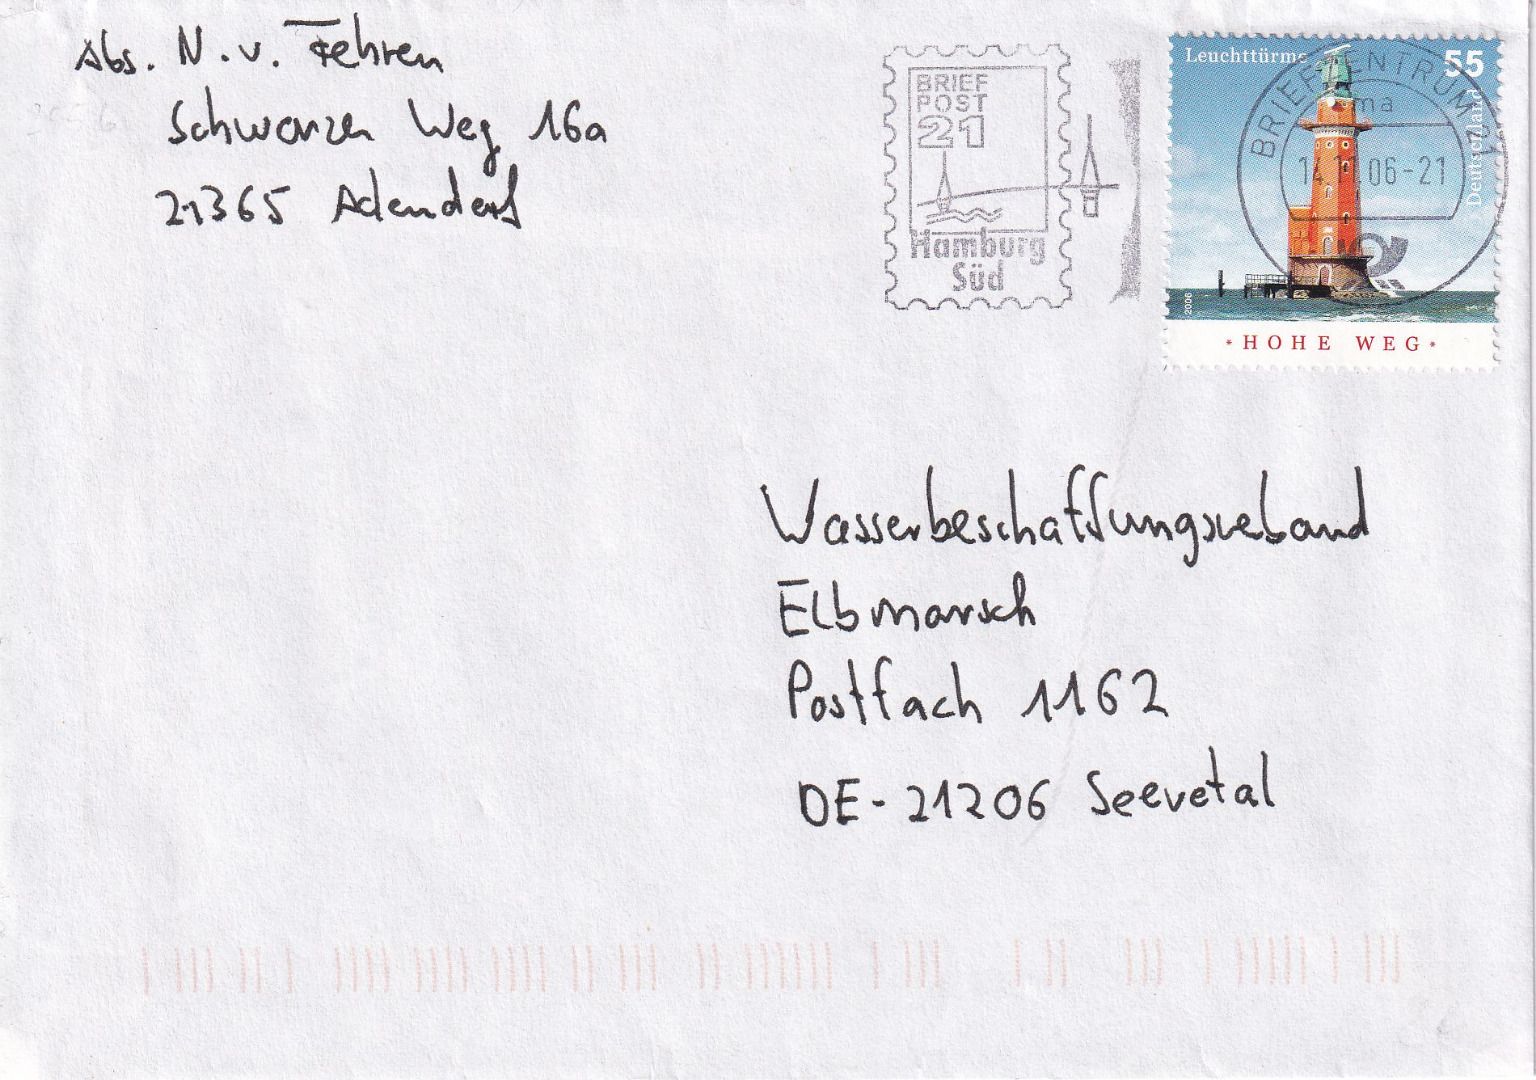 Abs. N. v. Fehren
Schwarzer Weg 16a
21365 Adendorf
BRIEF
POST
21
Hamburg
Süd
Leuchttürme
55
Deutschland
2006
* HOHE WEG *
BRIEFZENTRUM 21
ma
14.11.06-21
Wasserbeschaffungsverband
Elbmarsch
Postfach 1162
DE-21206 Seevetal